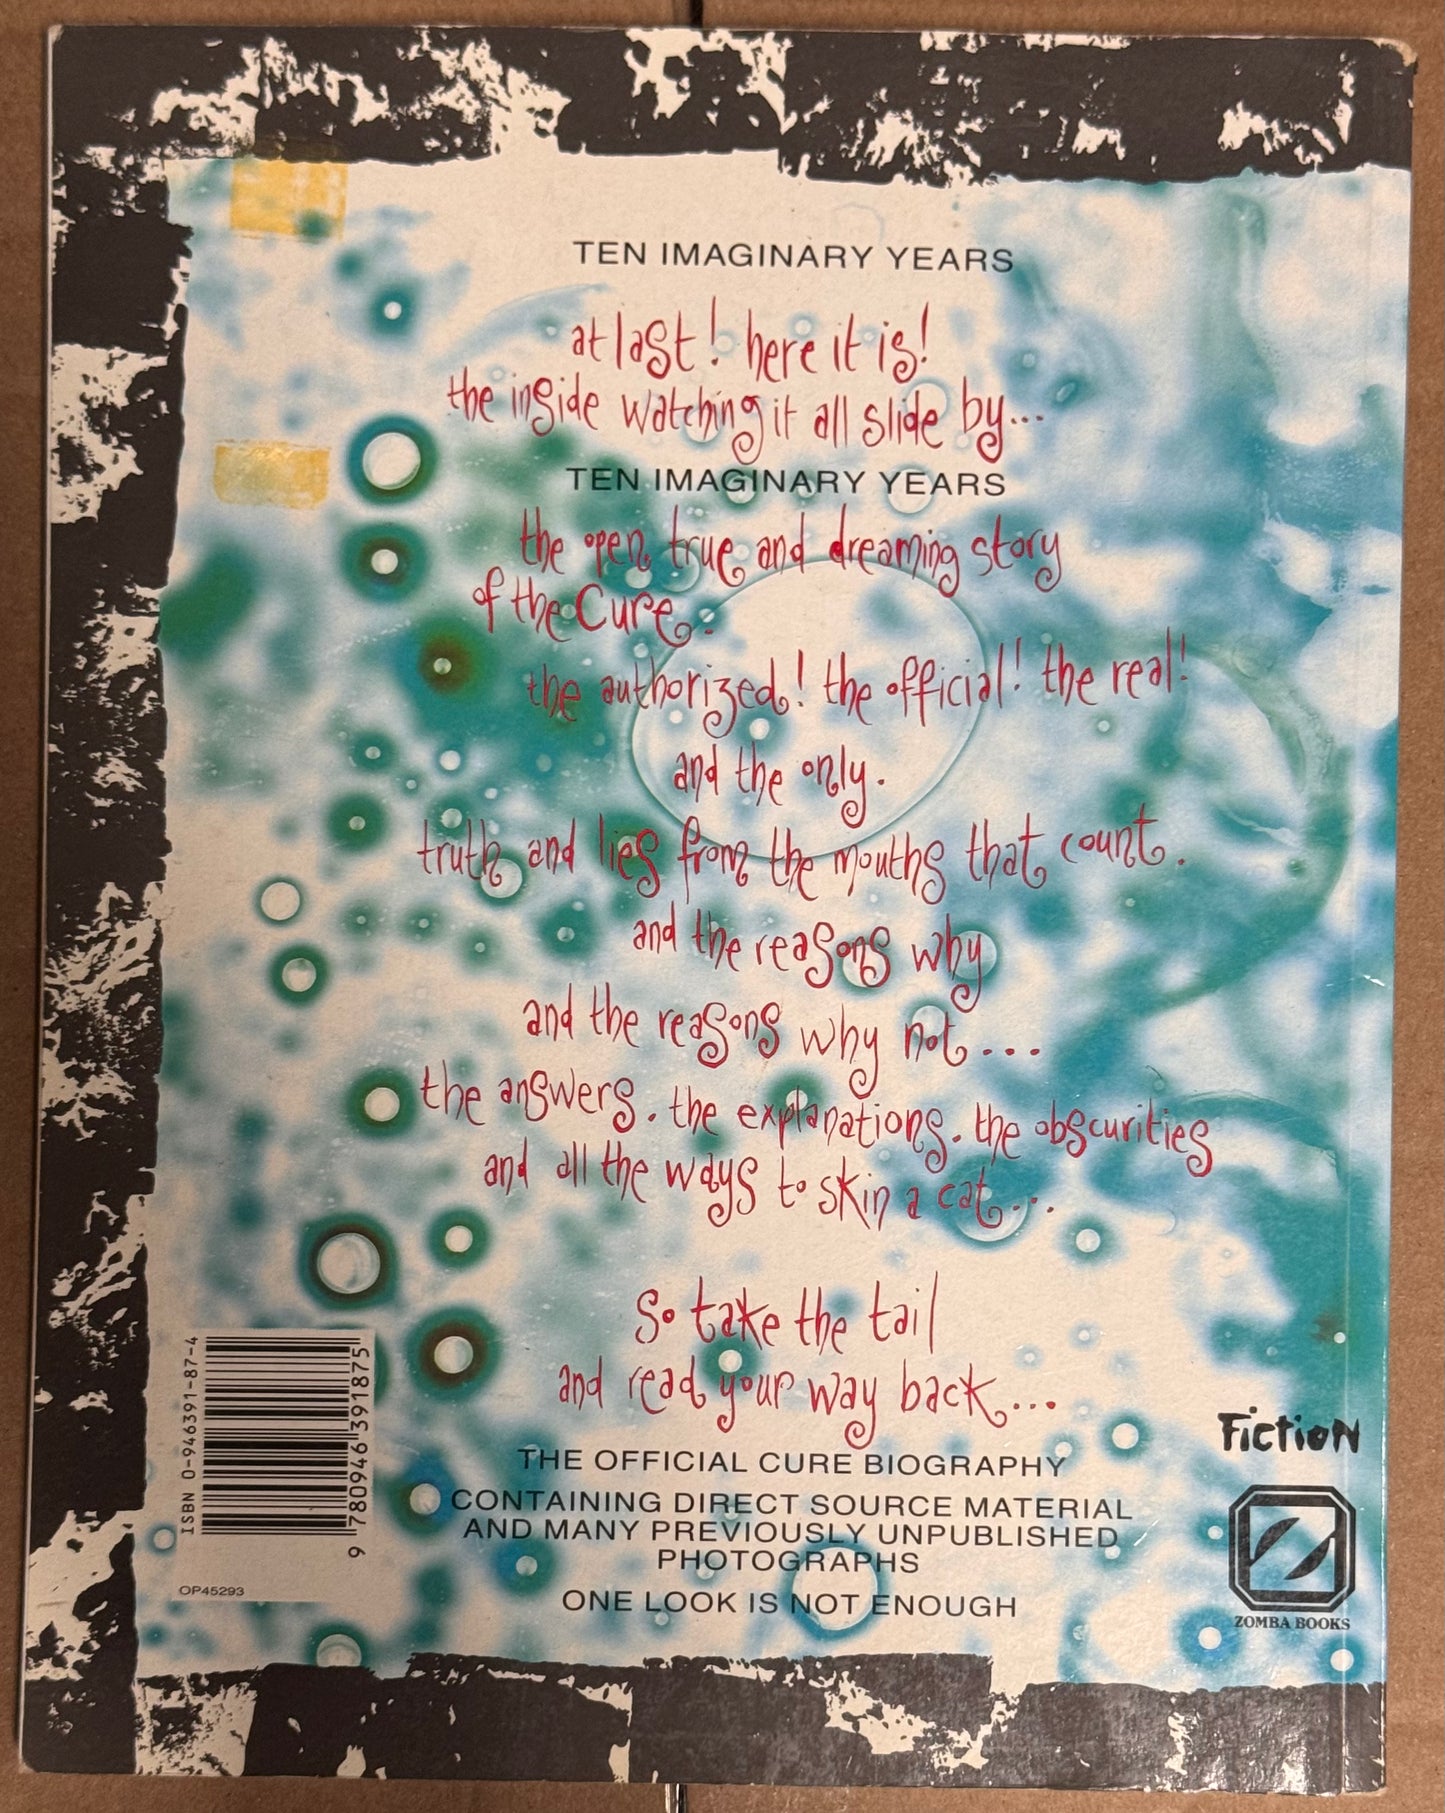 TEN IMAGINARY YEARS
at last! here it is!
the inside watching it all slide by...
TEN IMAGINARY YEARS
the open, true and dreaming story
of the Cure.
the authorized! the official! the real!
and the only.
truth and lies from the mouths that count.
and the reasons why
and the reasons why not...
the answers. the explanations. the obscurities
and all the ways to skin a cat...
So take the tail
and read your way back...
THE OFFICIAL CURE BIOGRAPHY
CONTAINING DIRECT SOURCE MATERIAL
AND MANY PREVIOUSLY UNPUBLISHED
PHOTOGRAPHS
ONE LOOK IS NOT ENOUGH
ISBN 0-946391-87-4
9 780946 391875
OP45293
FictioN
ZOMBA BOOKS